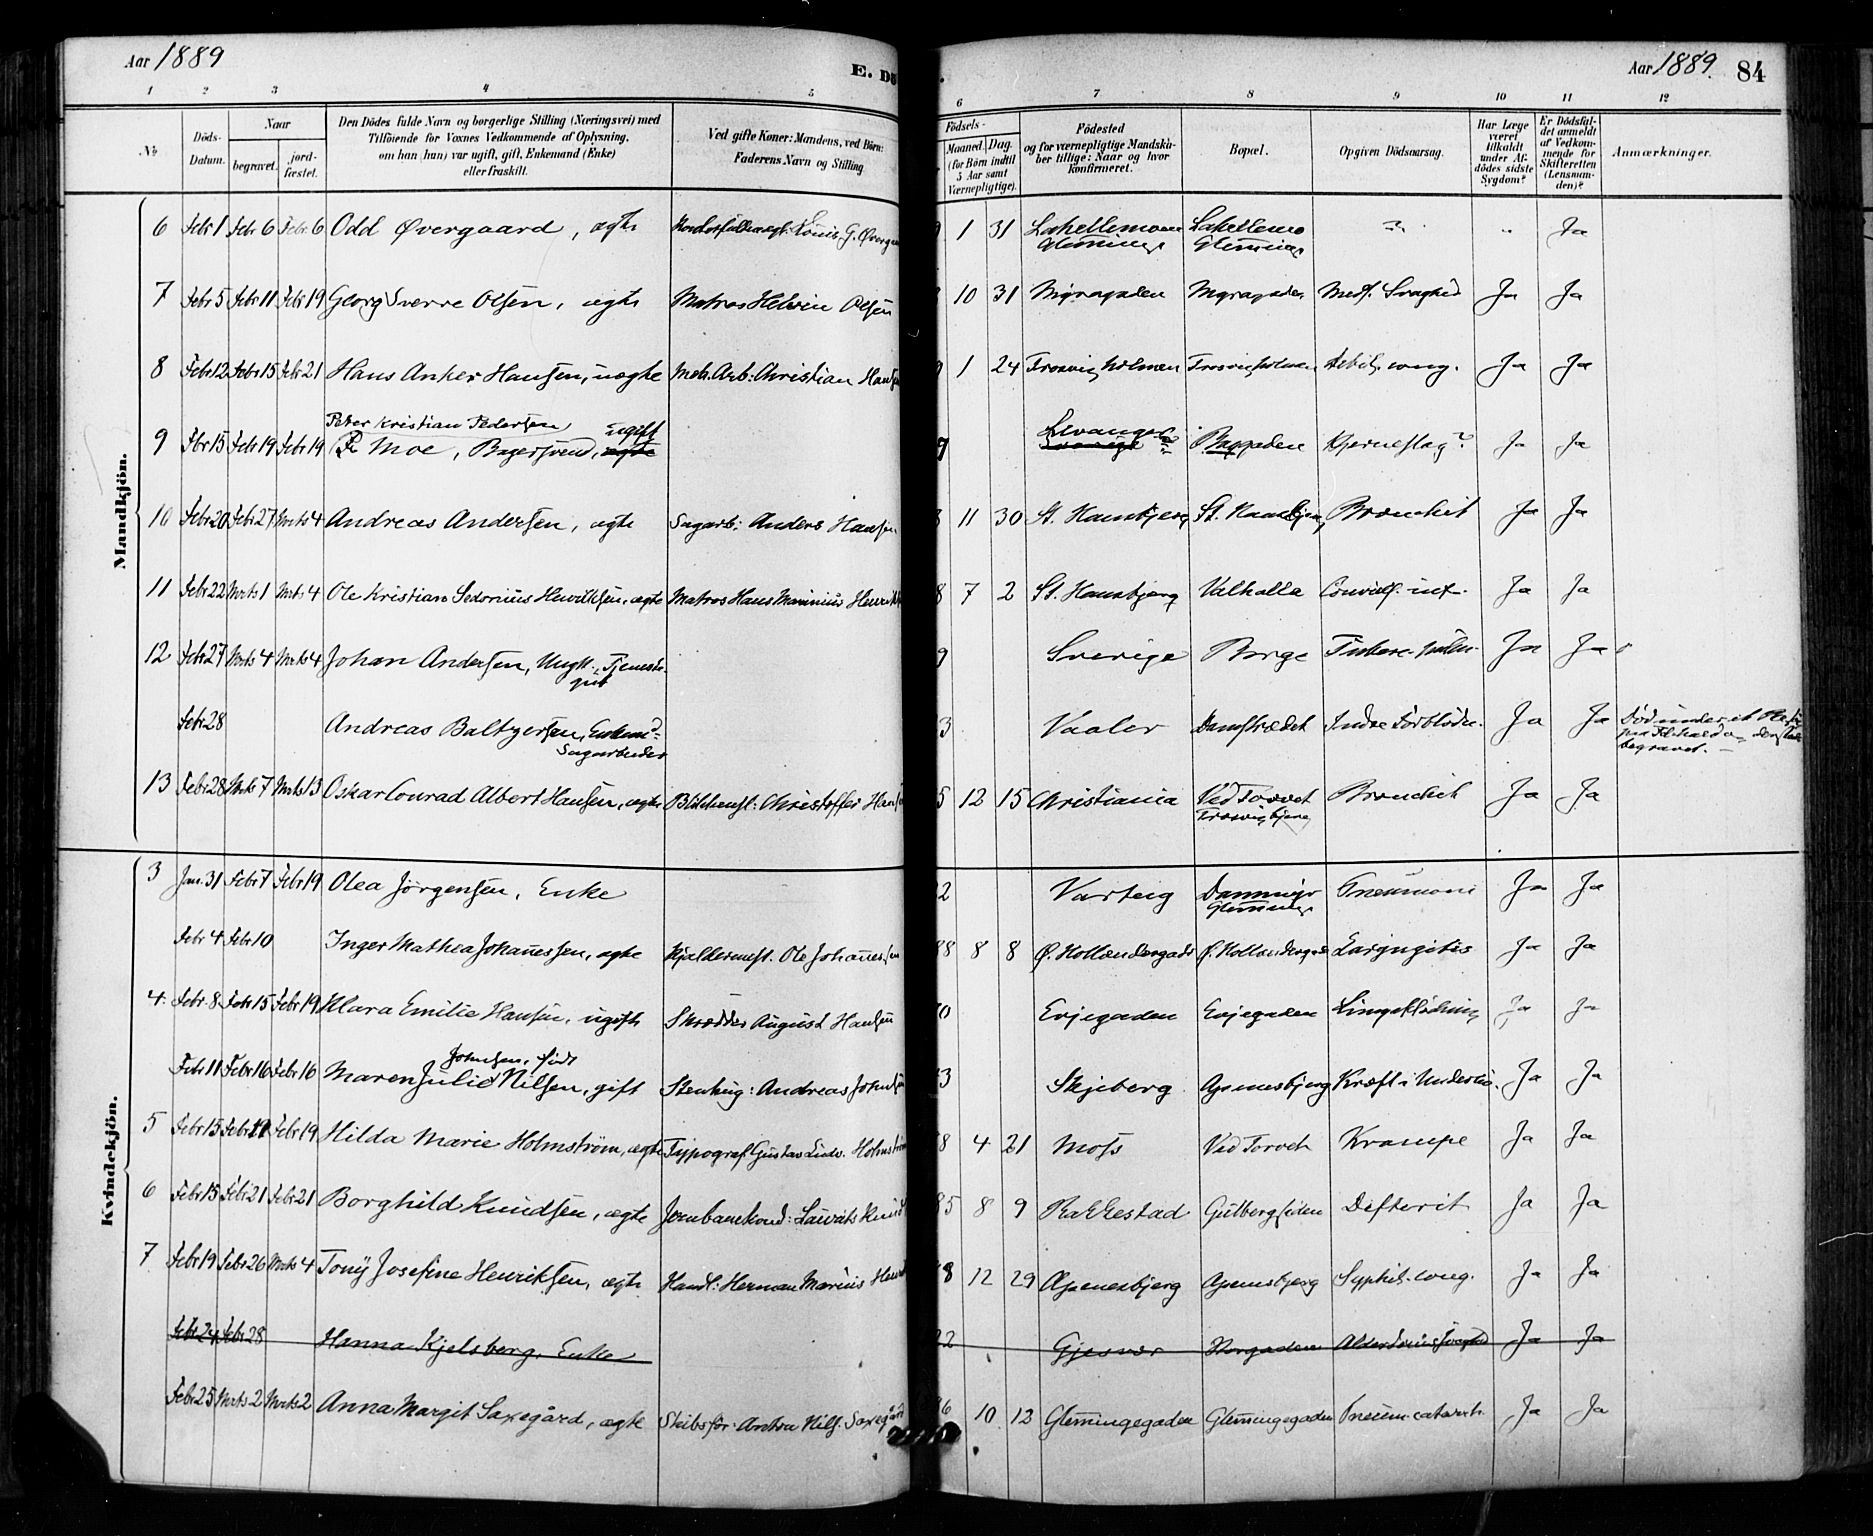 Aar 1889
E. DØ
Aar 1889.
84
1 2 3 4 5 6 7 8 9 10 11 12
No
Døds-Datum.
Naar
begravet.
jord-fæstet.
Den Dödes fulde Navn og borgerlige Stilling (Næringsvei) med
Tilföiende for Voxnes Vedkommende af Oplysning,
om han (hun) var ugift, gift, Enkemand (Enke)
eller fraskilt.
Ved gifte Koner: Mandens, ved Börn:
Faderens Navn og Stilling
Födsels-
Maaned. Dag.
(for Börn indtil
5 Aar samt
Værnepligtige).
Födested
og for værnepligtige Mandskaber tillige: Naar og hvor
konfirmeret.
Bopæl.
Opgiven Dödsaarsag.
Har Læge
været
tilkaldt
under Afdödes sidste
Sygdom?
Er Dödsfaldet anmeldt
af Vedkommende for
Skifteretten
(Lensmanden)?
Anmærkninger.
Mandkjön.
6 Febr 1 Febr 6 Febr. 6 Odd Øvergaard, ægte Louis G. Øverga 1 31 Glemminge Glemminge " Ja
7 Febr 5 Febr 11 Febr 19 Georg Sverre Olsen, ægte Matros Helvin Olsen 10 31 Nygaden Medf. Svaghed Ja Ja
8 Febr 12 Febr 15 Febr 21 Hans Anker Hansen, uægte Arb: Christian Hans 1 24 Trosvigholmen Trosvigholmen cong. Ja Ja
Peter Kristian Pedersen ugift
9 Fbr 15 Febr 19 Febr 19 Moe, Bagersvend, ægte 9 Levanger? Sverige Baggaden Hjerneslag? Ja Ja
10 Febr 20 Febr 27 Mrts 4 Andreas Andersen, ægte Sagarb: Anders Hansen 11 30 St. Hansbjerg St. Hansbjerg Bronchit Ja Ja
11 Febr 22 Mrts 1 Mrts 4 Ole Kristian Sedonius Henriksen, ægte Matros Hans Marinius Henrik 8 7 2 St. Hansbjerg Valhalla Convuls. inf. Ja Ja
12 Febr 27 Mrts 4 Mrts 4 Johan Andersen, Ungk., Tjeneste-
gut 9 Sverige Borge Ja Ja
Febr 28 Andreas Baltzersen, Enkemd
Sagarbeider 3 Vaaler Damstrædet Indre Forblødn. Ja Ja Død under et
begravet.
13 Febr 28 Mrts 7 Mrts 13 Oskar Conrad Albert Hansen, ægte Christoffer Hans 5 12 15 Christiania Ved Torvet
Trosvigbjerg Bronchit Ja Ja
Kvindekjön.
3 Jan. 31 Febr 7 Febr 19 Olea Jörgensen, Enke 2 Varteig Dammyr
Glemminge Pneumoni Ja Ja
Febr 4 Febr 10 Inger Mathea Johannessen, ægte Kjældermest. Ole Johannessen 88 8 8 Ø. Hollændergade Ø. Hollændergade Laryngitis Ja Ja
4. Febr. 8 Febr 15 Febr 19 Klara Emilie Hansen, ugift Skrædder August Hansen 70 Evjegaden Evjegaden Lungeblødning Ja Ja
Johnsen, född
Febr 11 Febr 16 Febr 16 Maren Julie Nilsen, gift Stenhug: Andreas Johnsen 3 Skjeberg Apenesbjerg Kræft i Underliv. Ja Ja
5 Febr 15 Febr 19 Febr 19 Hilda Marie Holmström, ægte Typograf Gustav Ludv. Holmström 8 4 21 Moss Ved Torvet Krampe Ja Ja
6 Febr 15 Febr 21 Febr 21 Borghild Knudsen, ægte Jernbanekond: Laurits Knud 85 8 9 Rakkestad Gulbergsiden Difterit Ja Ja
7 Febr 19 Febr 26 Mrts 4 Tony Josefine Henriksen, ægte Handl: Herman Marius Henr 8 12 29 Apenesbjerg Apenesbjerg Syphil. cong. Ja Ja
Febr 24 Febr 28 Hanna Kjelsberg, Enke 22 Gjesvær Storgaden Alderdomssvaghed Ja Ja
Febr 25 Mrts 2 Mrts 2 Anna Margit Saxegård, ægte Skibsför: Anton Nils. Saxegård 6 10 12 Glemmingegaden Glemmingegaden Pneum. catarrh. Ja Ja